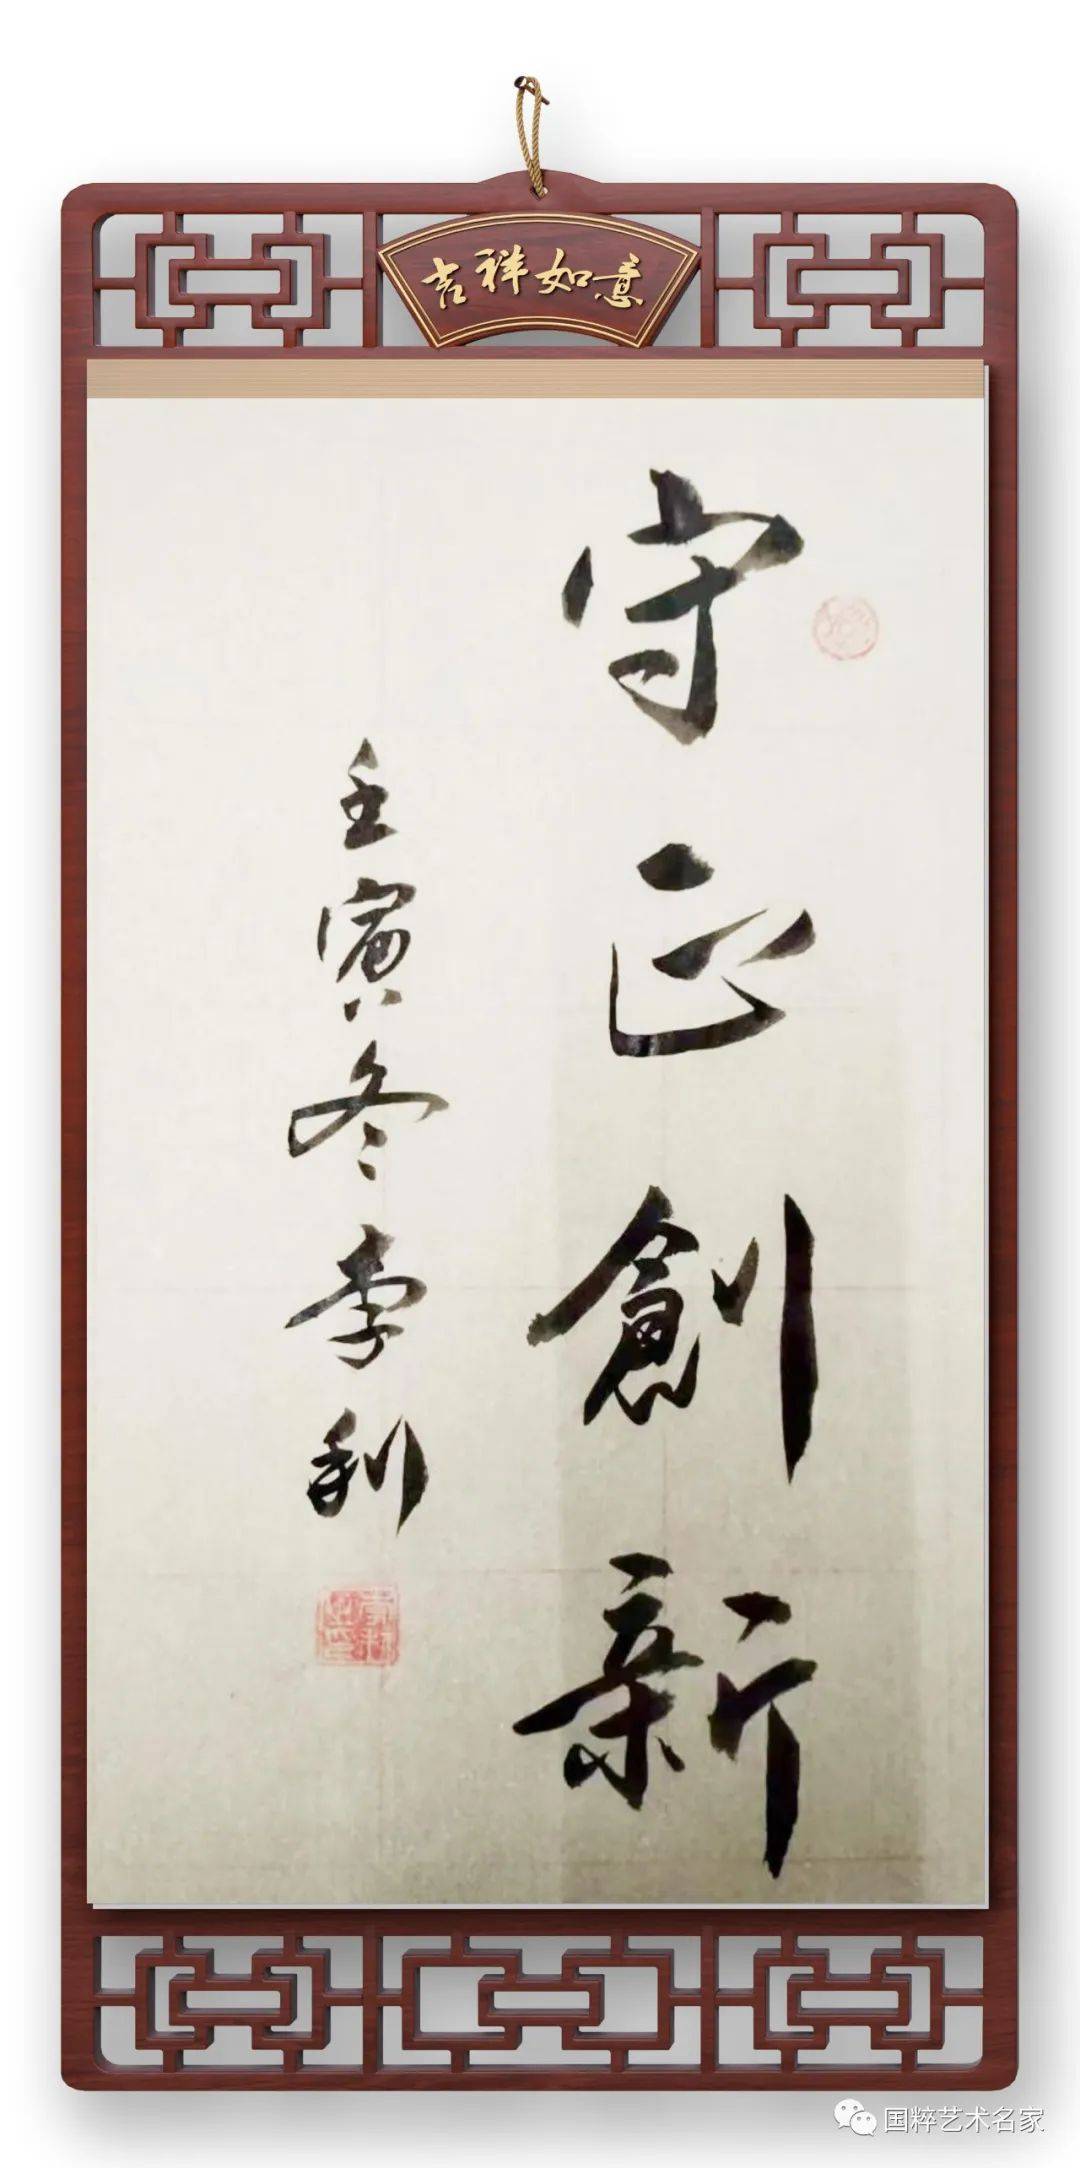 吉祥如意
守正創新
壬寅冬李利
国粹艺术名家